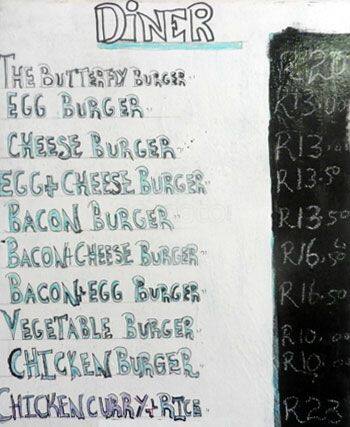 DINER
THE BUTTERFLY BURGER R20
EGG BURGER R13,00
CHEESE BURGER R13.
EGG+CHEESE BURGER R13.50
BACON BURGER R13.50
BACON+CHEESE BURGER R16.50
BACON+EGG BURGER R16.50
VEGETABLE BURGER R10,00
CHICKEN BURGER R10
CHICKEN CURRY+RICE R23